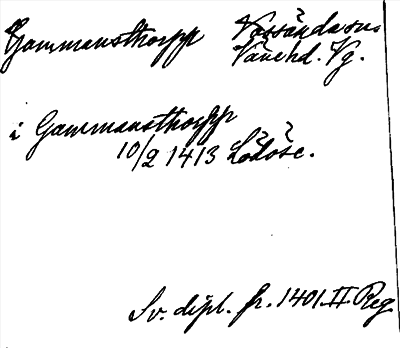 Gammansthorpp Vassända sns
Väne hd. Vg.
i Gammansthorpp
10/2 1413 Lödöse.
Sv. dipl. fr. 1401 II Reg